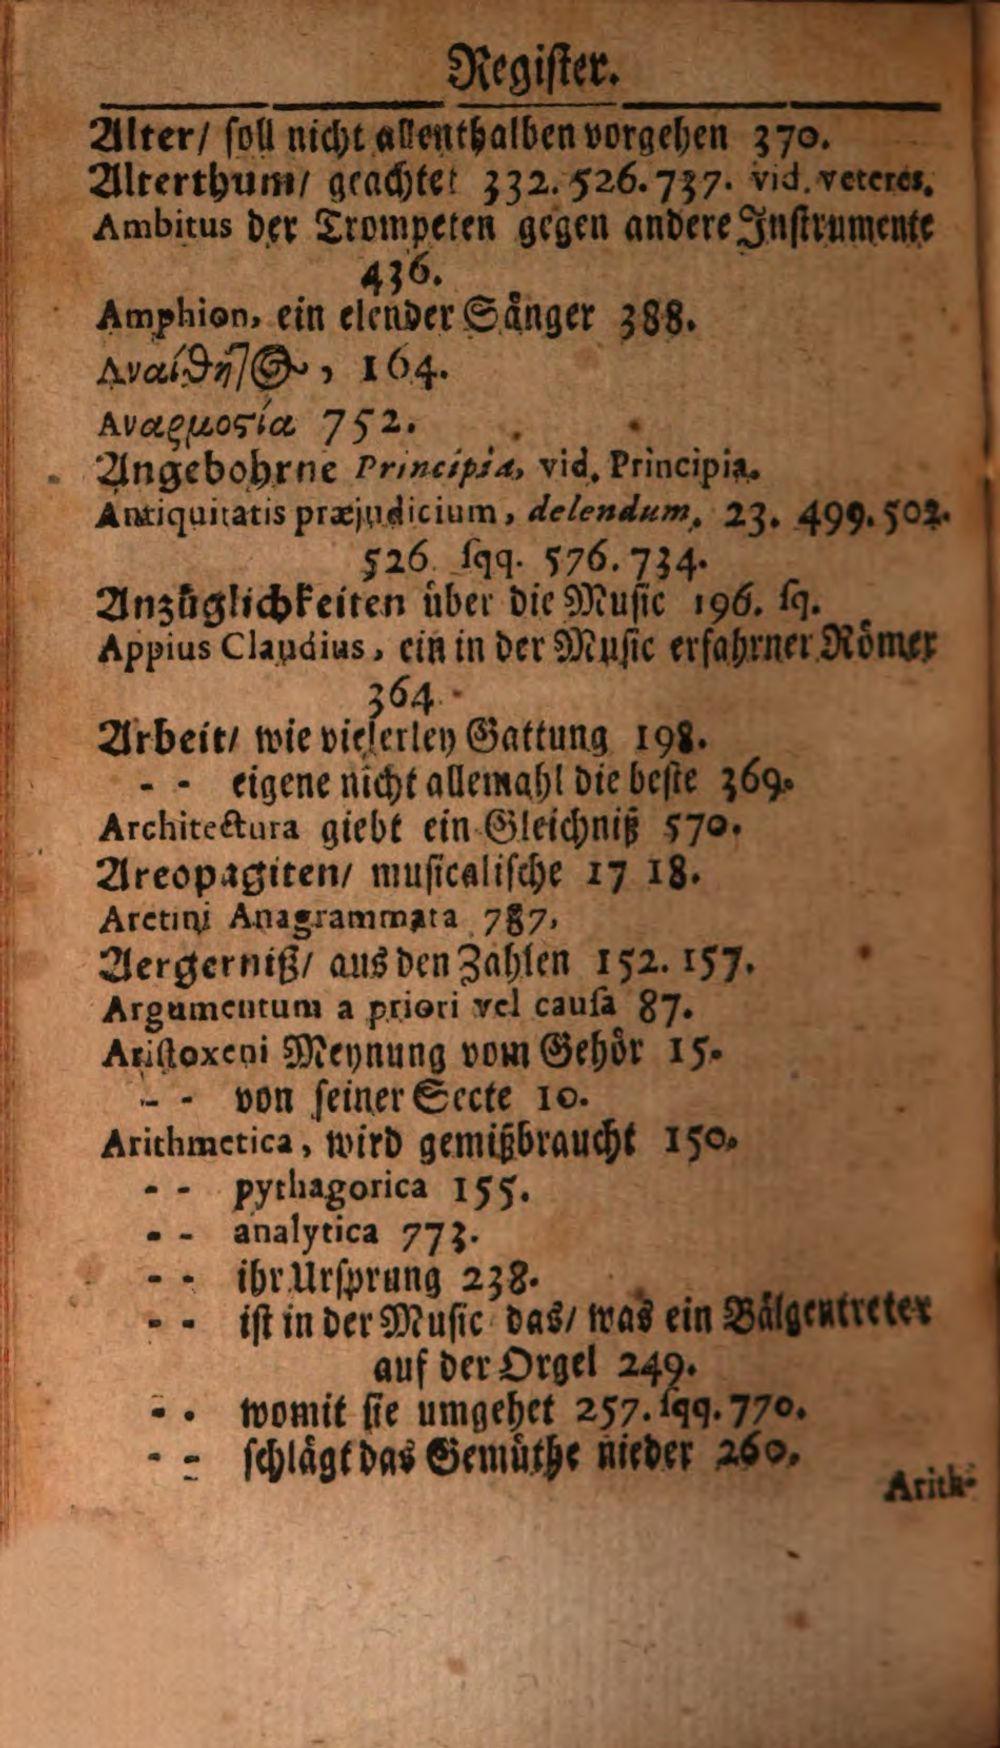 Register.
Alter/ soll nicht allenthalben vorgehen 370.
Alterthum/ geachtet 332. 526. 737. vid. veteres.
Ambitus der Trompeten gegen andere Instrumente
436.
Amphion, ein elender Sånger 388.
Αναίϑητ@, 164.
Αναρμοςία 752.
Angebohrne Principia, vid. Principia.
Antiquitatis præjudicium, delendum, 23. 499. 502.
526. sqq. 576. 734.
Anzůglichkeiten über die Music 196. sq.
Appius Claudius, ein in der Music erfahrner Rômer
364.
Arbeit/ wie vielerley Gattung 198.
- - eigene nicht allemahl die beste 369.
Architectura giebt ein Gleichniß 570.
Areopagiten/ musicalische 17 18.
Aretini Anagrammata 787,
Aergerniß/ aus den Zahlen 152. 157.
Argumentum a priori vel causa 87.
Aristoxeni Meynung vom Gehôr 15.
- - von seiner Secte 10.
Arithmetica, wird gemißbraucht 150.
- - pythagorica 155.
- - analytica 773.
- - ihr Ursprung 238.
- - ist in der Music das/ was ein Bålgentreter
auf der Orgel 249.
- - womit sie umgehet 257. sqq. 770.
- - schlågt das Gemůthe nieder 260.
Arith-